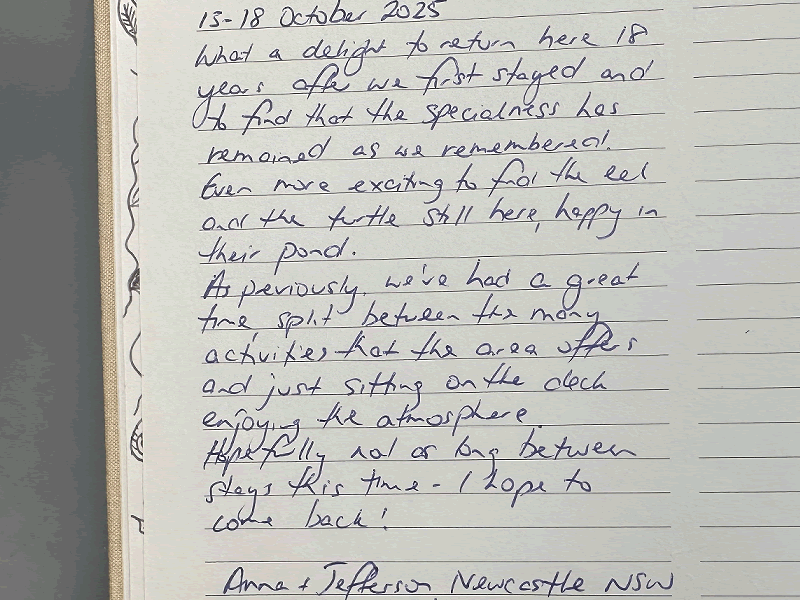 13-18 October 2025
What a delight to return here 18
years after we first stayed and
to find that the specialness has
remained as we remembered.
Even more exciting to find the eel
and the turtle still here, happy in
their pond.
As previously, we've had a great
time, split between the many
activities that the area offers
and just sitting on the deck
enjoying the atmosphere.
Hopefully not as long between
stays this time - I hope to
come back!
Anna + Jefferson Newcastle NSW